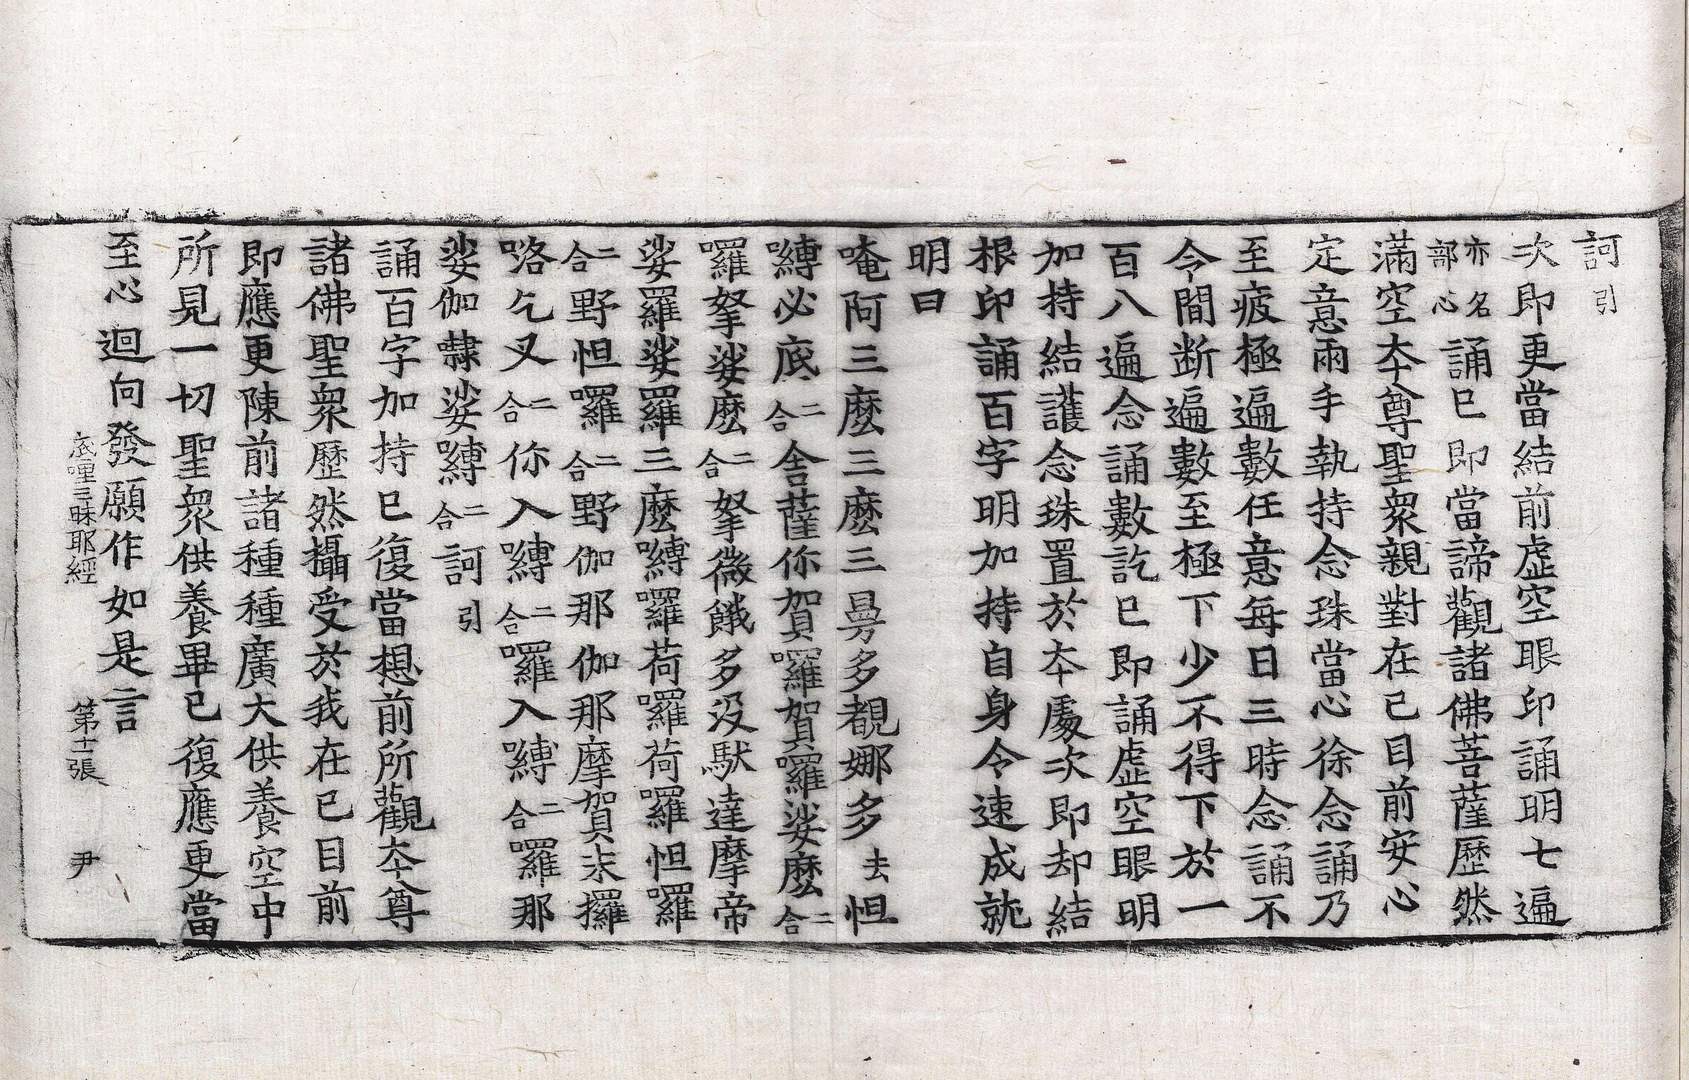 訶引
次即更當結前虛空眼印誦明七遍
亦名部心誦已即當諦觀諸佛菩薩歷然
滿空夲尊聖衆親對在已目前安心
定意兩手執持念珠當心徐念誦乃
至疲極遍數任意每日三時念誦不
令間断遍數至極下少不得下於一
百八遍念誦數訖已即誦虛空眼明
加持結護念珠置於夲處次即却結
根印誦百字明加持自身令速成就
明曰
唵阿三麽三麽三曼多覩娜多去怛
嚩必底二合舍薩你賀囉賀囉娑麽二合
囉拏娑麽二合拏微餓多没馱達摩帝
娑羅娑羅三麽嚩囉荷囉荷囉怛囉
二合野怛囉二合野伽那伽那摩賀末攞
咯乞叉二合你入嚩二合囉入嚩二合囉那
娑伽隸娑嚩二合訶引
誦百字加持已復當想前所觀夲尊
諸佛聖衆歷然攝受於我在已目前
即應更陳前諸種種廣大供養空中
所見一切聖衆供養畢已復應更當
至心迴向發願作如是言
底哩三昧耶經 第十一張 尹